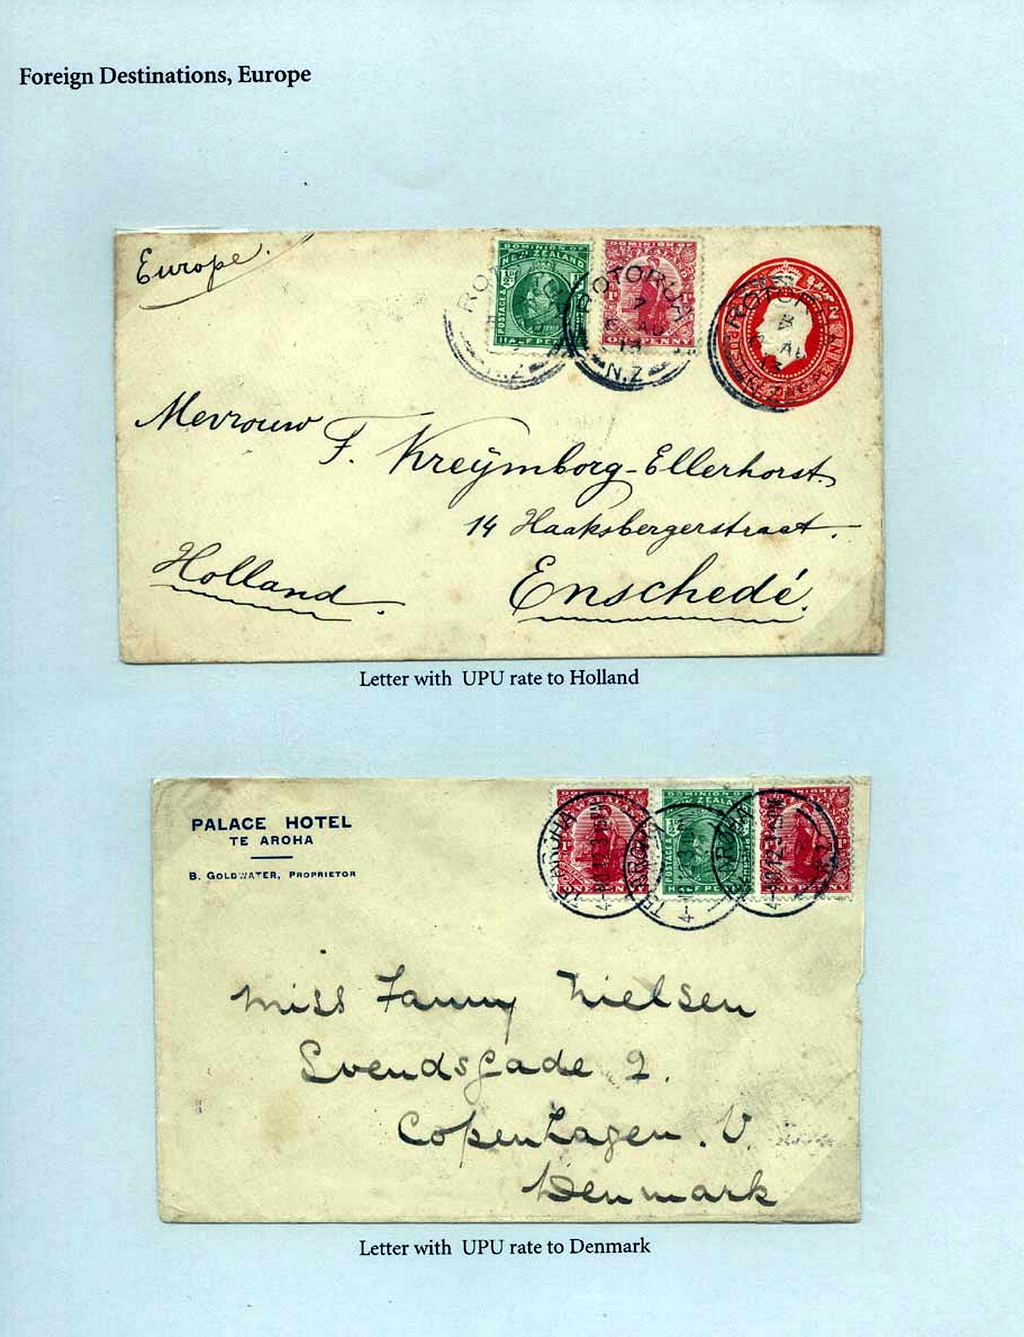 Foreign Destinations, Europe
Europe.
DOMINION OF
NEW ZEALAND
POSTAGE &
HALF PEN
DOMINION OF
ONE PENNY
ROTORUA
7
6 AU
13
N.Z
Mevrouw
F. Kreymborg-Ellerhorst
14 Haaksbergerstraat.
Holland.
Enschedé.
Letter with UPU rate to Holland
PALACE HOTEL
TE AROHA
B. GOLDWATER, PROPRIETOR
DOMINION OF
ONE PENNY
TE AROHA
DOMINION OF
ZEALAND
POSTAGE &
HALF PE
TE AROHA
DOMINION OF
ONE PENNY
Miss Fanny Nielsen
Svendsgade 2.
Copenhagen. V.
Denmark
Letter with UPU rate to Denmark